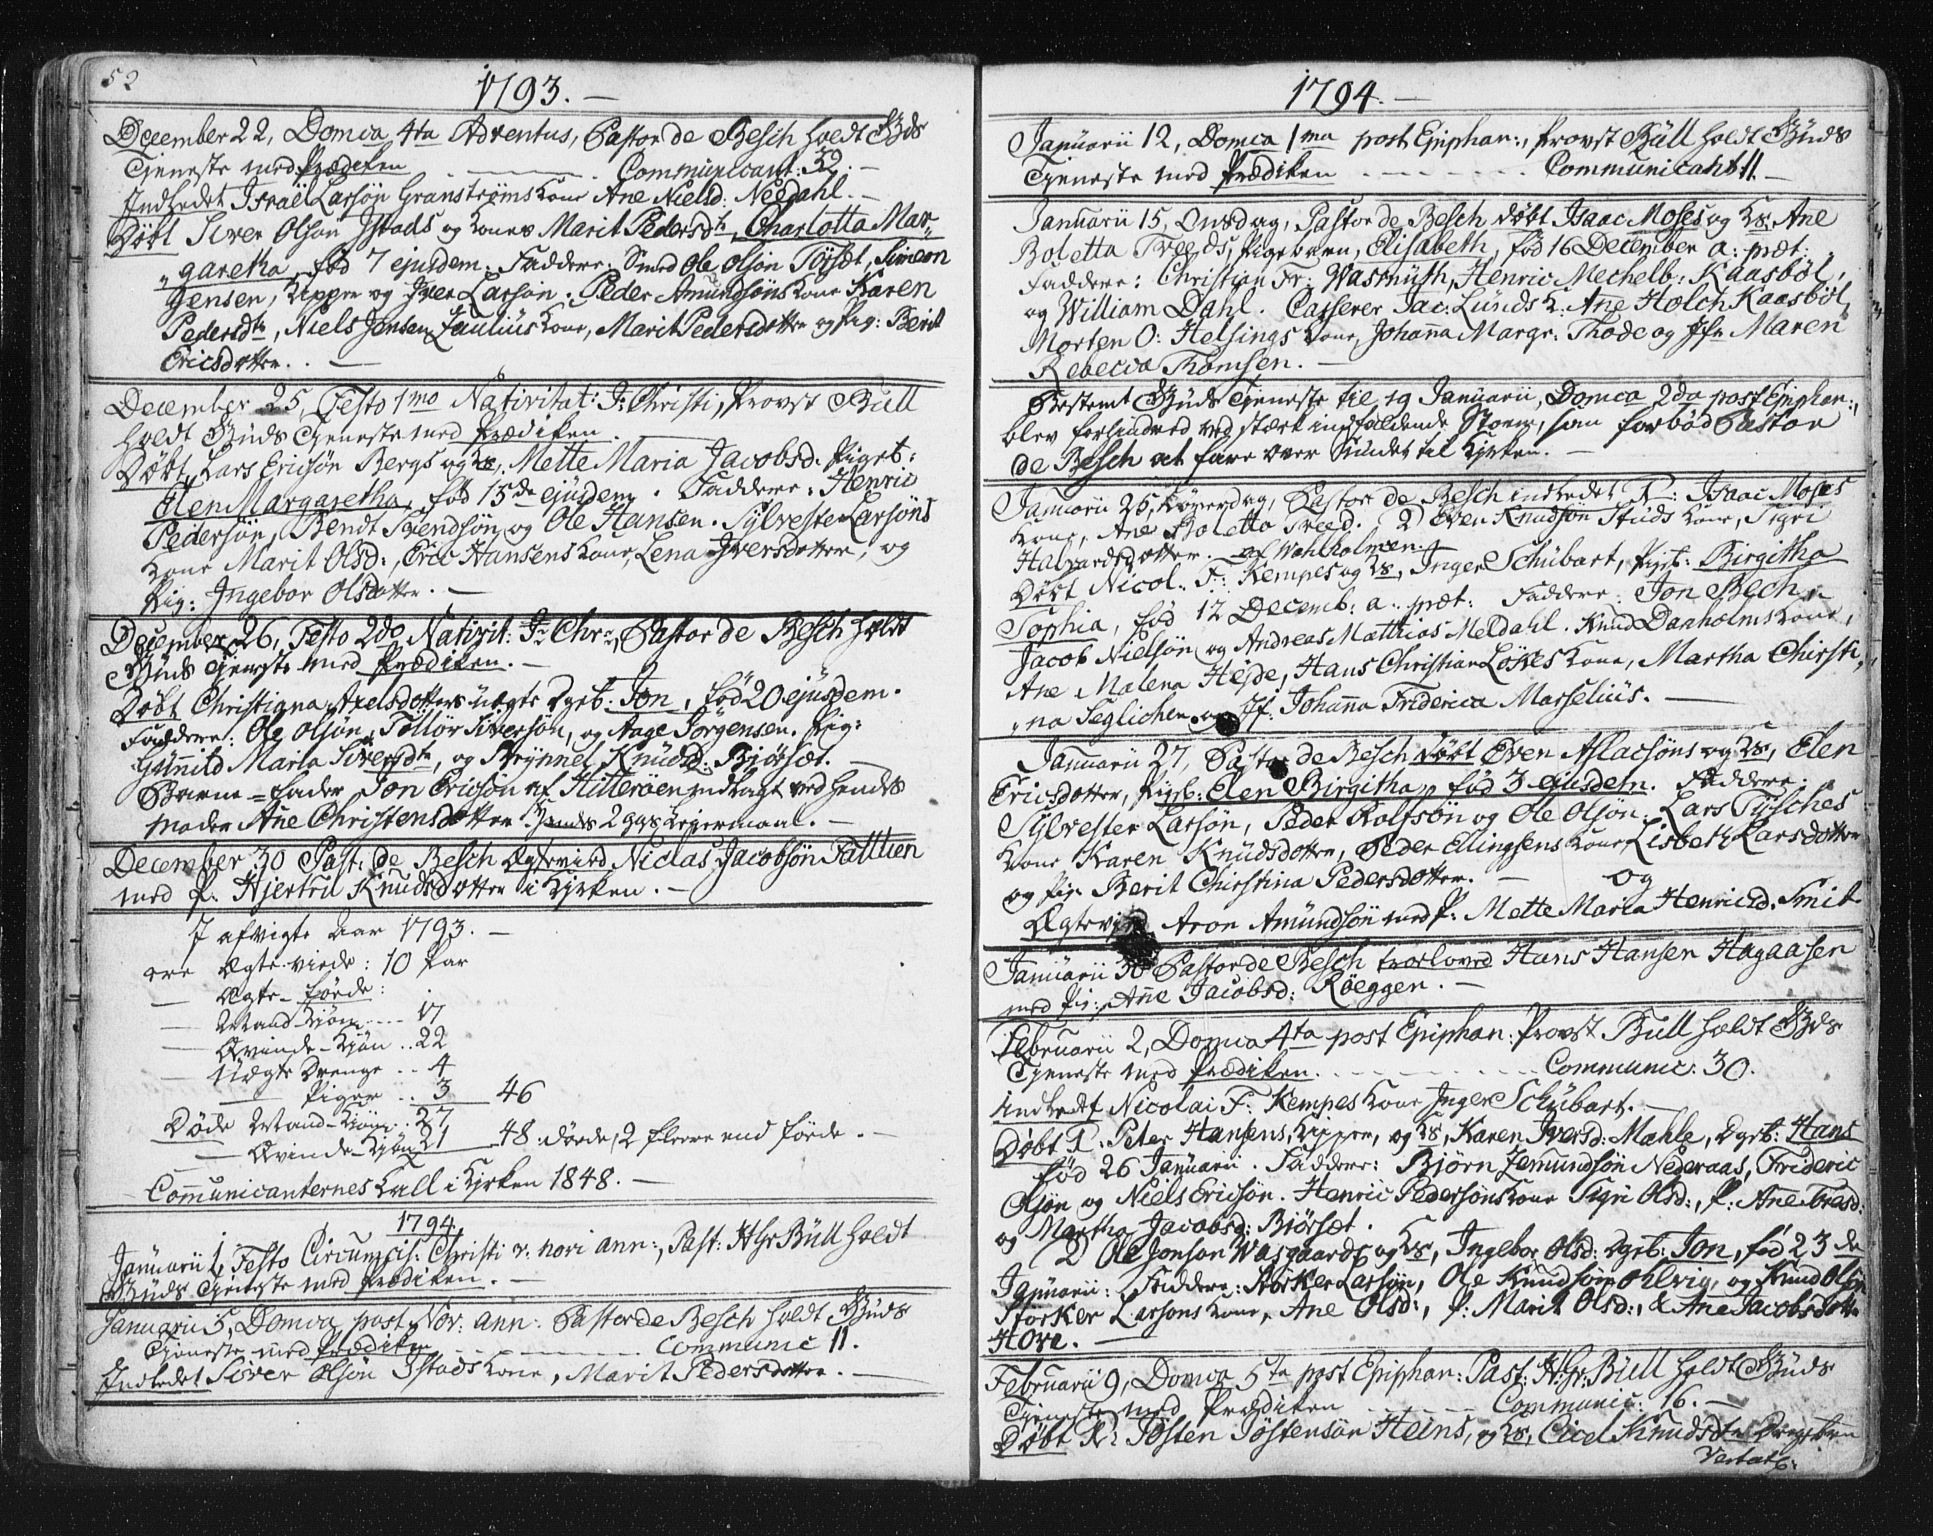 52
1793. —
December 22, Domca 4ta Adventus, Pastor de Besch holdt Guds
Tieneste med Prædiken — Communicant: 32. —
Indledet Israël Larsøn Granstrøms Kone Ane Nielsd: Nerdahl. —
Døbt Siver Olsøn Jstads og Kones Marit Pedersdtr, Charlotta Mar-
garetha, fød 7 ejusdem. Faddere: Smed Ole Olsøn Tøfset, Simeon
Jensen, Kipper og Iver Larsøn. Peder Amundsøns Kone Karen
Pedersdtr, Niels Jensen Paulius Kone, Marit Pedersdotter og Pig: Berit
Ericsdotter. —
December 25, Festo 1mo Nativitat: J: Christi, Provst Bull
holdt Guds Tieneste med Prædiken.
Døbt, Lars Ericsøn Bergs og Ks, Mette Maria Jacobsd. Pigeb:
Elen Margaretha, fød 15de ejusdem. Faddere: Henric
Pedersøn, Bendt Svendsøn og Ole Hansen. Sylvester Larsøns
Kone Marit Olsd:, Eric Hansens Kone, Lena Iversdotter, og
Pig: Ingebor Olsdotter. —
December 26, Festo 2do Nativit: J: Chr:, Pastor de Besch holdt
Guds Tieneste med Prædiken. —
Døbt Christiana Axelsdotters uægte Dgeb: Jon, fød 20 ejusdem.
Faddere: Ole Olsøn, Tollør Siversøn, og Aage Jørgensen. Pig:
Gunnild Maria Siversdtr, og Brynnel Knudsd: Bjørsæt. —
Barne-Fader Jon Ericsøn af Hitterøen indlagt ved hendes
Moder Ane Christensdotter hendes 2 ggs Leiermaal. —
December 30 Past: de Besch Ægtevied Niclas Jacobsøn Fættlien
med P. Hjertru Knudsdotter i Kirken. —
I afvigte Aar 1793. —
ere Ægte-viede: 10 Par
— Ægte-fødde:
— Mand-Kjøn .... 17
— Qvinde-Kjøn .. 22
— Uægte Drenge .. 4
— Piger .. 3 46
Døde Mand-Kjøn .. 27
— Qvinde-Kjøn 21 48. døde, 2 fleere end fødde. —
Communicanternes Tall i Kirken 1848. —
1794.
Januarii 1, Festo Circumcis: Christi v: novi ann:, Past: Hr Bull holdt
Guds Tieneste med Prædiken. —
Januarii 5, Domca post Nov: ann: Pastor de Besch holdt Guds
Tieneste med Prædiken — Communic 11.
Indledet Siver Olsøn Jstads Kone, Marit Pedersdotter. —
1794. —
Januarii 12, Domca 1ma post Epiphan:, Provst Bull holdt Guds
Tieneste med Prædiken — Communicant 11 —
Januarii 15, Onsdag, Pastor de Besch døbt Isaac Moses og Ks, Ane
Boletta Treeds, Pigebarn, Elisabeth, fød 16 December a: præt:
Faddere: Christian Fr: Wasmuth, Henric Mechelb: Kaasbøl,
og William Dahl. Casserer Jac: Lunds K: Ane Holch Kaasbøl,
Morten O: Helsings Kone, Johanna Margr: Thode og Jfr Maren
Rebecca Thomsen. —
Bestemt Guds Tieneste til 19 Januarii, Domca 2da post Epiphan:,
blev forhindred ved stærk indfaldende Storm, som forbød Pastor
de Besch at fare over Sundet til Kirken. —
Januarii 25, Løverdag, Pastor de Besch indledet 1: Isaac Moses
Kone, Ane Boletta Treed. 2 Even Knudsøn Studs Kone, Sigri
Halvardsdotter. af Wahlholmen. —
Døbt Nicol: F: Kempes og Ks, Inger Schubart, Pigeb: Birgitha
Sophia, fød 12 Decemb: a: præt: Faddere: Jon Bech,
Jacob Nielsøn og Andreas Matthias Meldahl. Knud Danholms Kone,
Ane Malena Hejde, Hans Christian Løkes Kone, Martha Christi-
na Seglichen og Jf: Johanna Friderica Marselius. —
Januarii 27, Pastor de Besch døbt Even Aslacsøns og Ks, Elen
Ericsdotter, Pigeb: Elen Birgitha, fød 3 ejusdem. Faddere:
Sylvester Larsøn, Peder Rolfsøn og Ole Olsøn. Lars Tysches
Kone Karen Knudsdotter, Peder Ellingsens Kone, Lisbeth Larsdotter
og Pig: Berit Chirstina Pedersdotter. — og
Ægteviet Aron Amundsøn med P: Mette Maria Henricsd: Smit
Januarii 30 Pastor de Besch trolovet Hans Hansen Hagaasen
med Pig: Ane Jacobsd: Røeggen. —
Februarii 2, Domca 4ta post Epiphan: Provst Bull holdt Guds
Tieneste med Prædiken. — Communic: 30.
Indledt Nicolai F: Kempes Kone Inger Schubart. —
Døbt 1: Peter Hansens, Kipper, og Ks, Karen Iversd: Mahle, Dgeb: Hans
fød 26 Januarii. Faddere: Bjørn Jemundsøn Nederaas, Frideric
Olsøn og Niels Ericsøn. Henric Pedersøns Kone Sigri Olsd:, P: Ane Tresd:
og Martha Jacobsd: Bjørsæt.
2 Ole Jonsøn Wasgaards og Ks, Ingebor Olsd: Dgeb: Jon, fød 23de
Januarii: Faddere: Storker Larsøn, Ole Knudsøn Ohlvig, og Knud Olsøn
Storker Larsøns Kone, Ane Olsd:, P: Marit Olsd:, & Ane Jacobsdotter
Hove. —
Februarii 9, Domca 5ta post Epiphan: Past: Hr: Bull holdt Guds
Tieneste med Prædiken — Communic: 16. —
Døbt 1: Tosten Tøstensøn Heins, og Ks, Cicel Knudsdtr Drengebarn
Vertat: